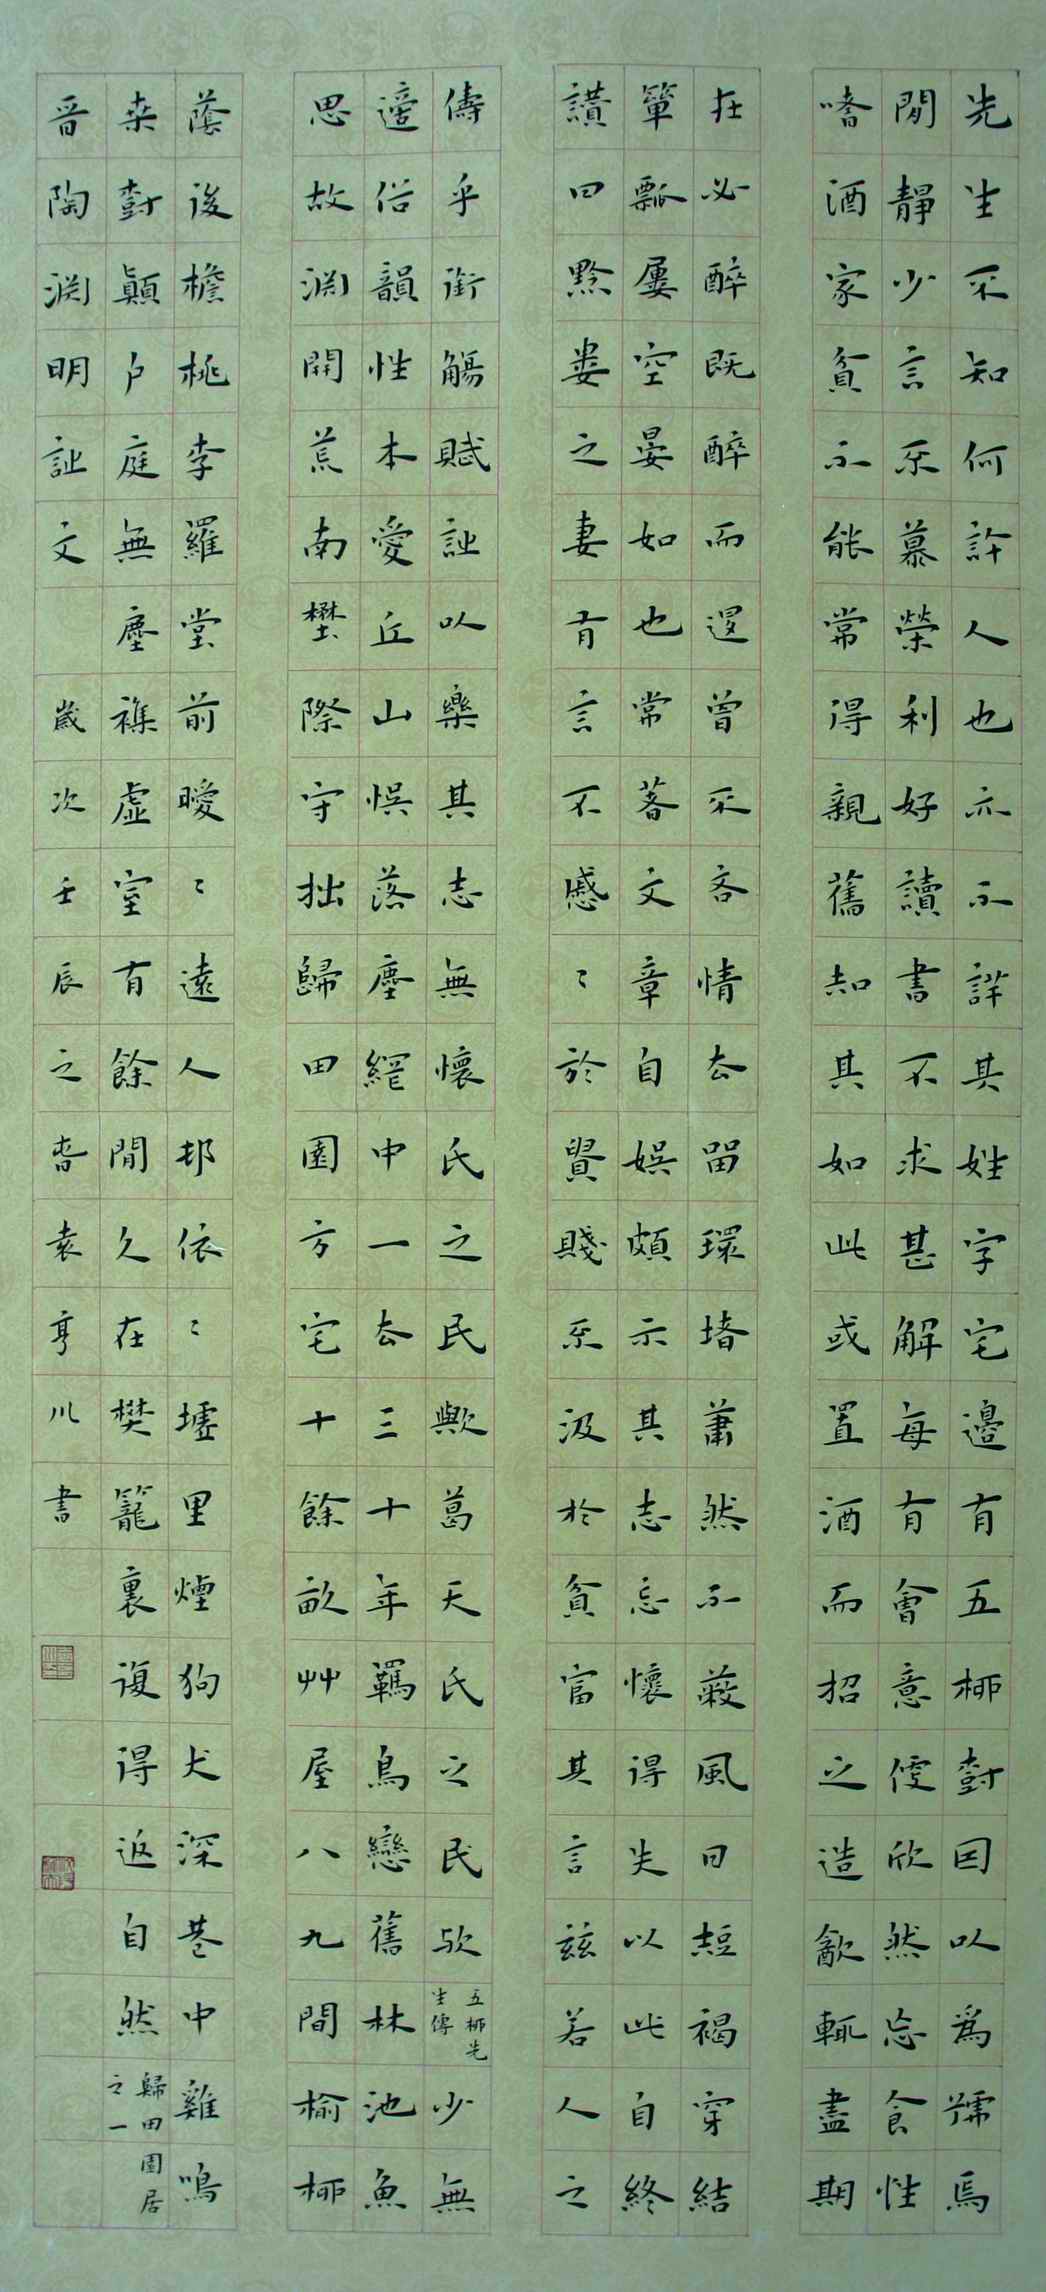 先生不知何許人也亦不詳其姓字宅邊有五柳樹因以爲號焉
閒靜少言不慕榮利好讀書不求甚解每有會意便欣然忘食性
嗜酒家貧不能常得親舊知其如此或置酒而招之造飲輒盡期
在必醉既醉而退曾不吝情去留環堵蕭然不蔽風日短褐穿結
簞瓢屢空晏如也常著文章自娛頗示其志忘懷得失以此自終
讚曰黔婁之妻有言不慼〻於貴賤不汲於貧富其言茲若人之
儔乎銜觴賦詩以樂其志無懷氏之民歟葛天氏之民歟五柳先生傳少無
適俗韻性本愛丘山悞落塵網中一去三十年羈鳥戀舊林池魚
思故淵開荒南壄際守拙歸田園方宅十餘畝艸屋八九間榆柳
蔭後檐桃李羅堂前曖〻遠人邨依〻墟里煙狗犬深巷中雞鳴
桑樹顛戶庭無塵襍虛室有餘閒久在樊籠裏復得返自然歸田園居之一
晋陶淵明詩文 歲次壬辰之春袁亨川書